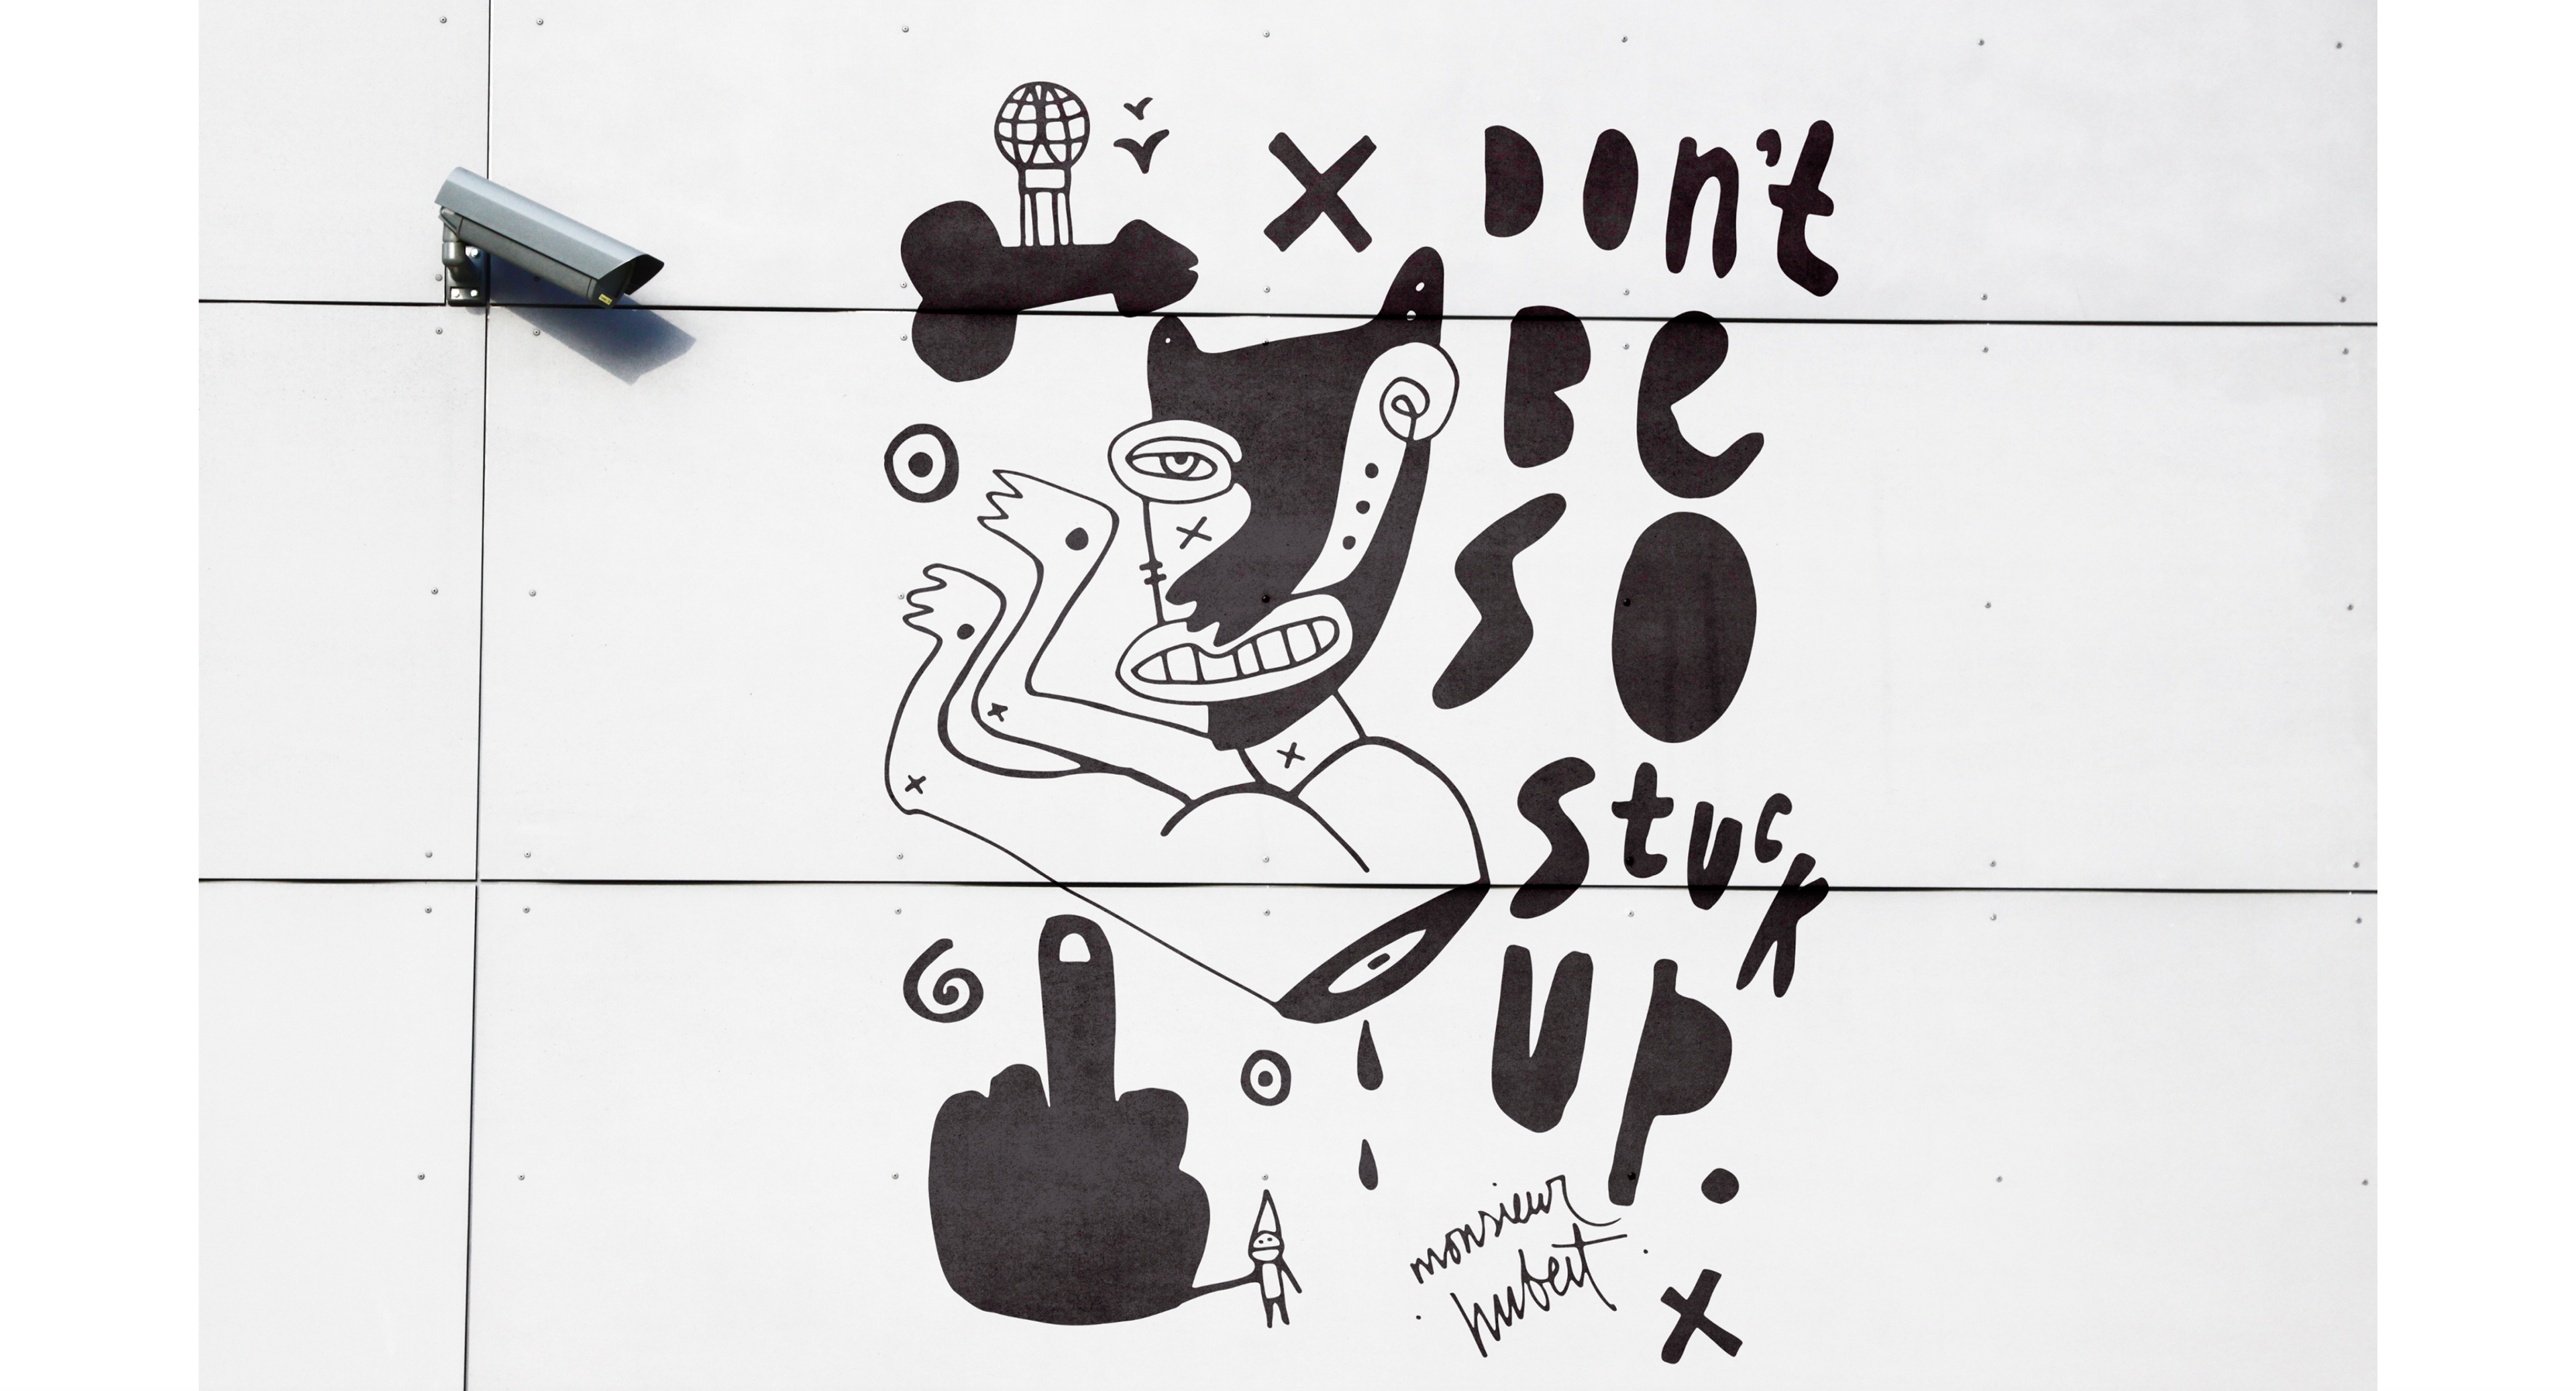 Don't
Be
SO
Stuck
UP.
monsieur
hubert